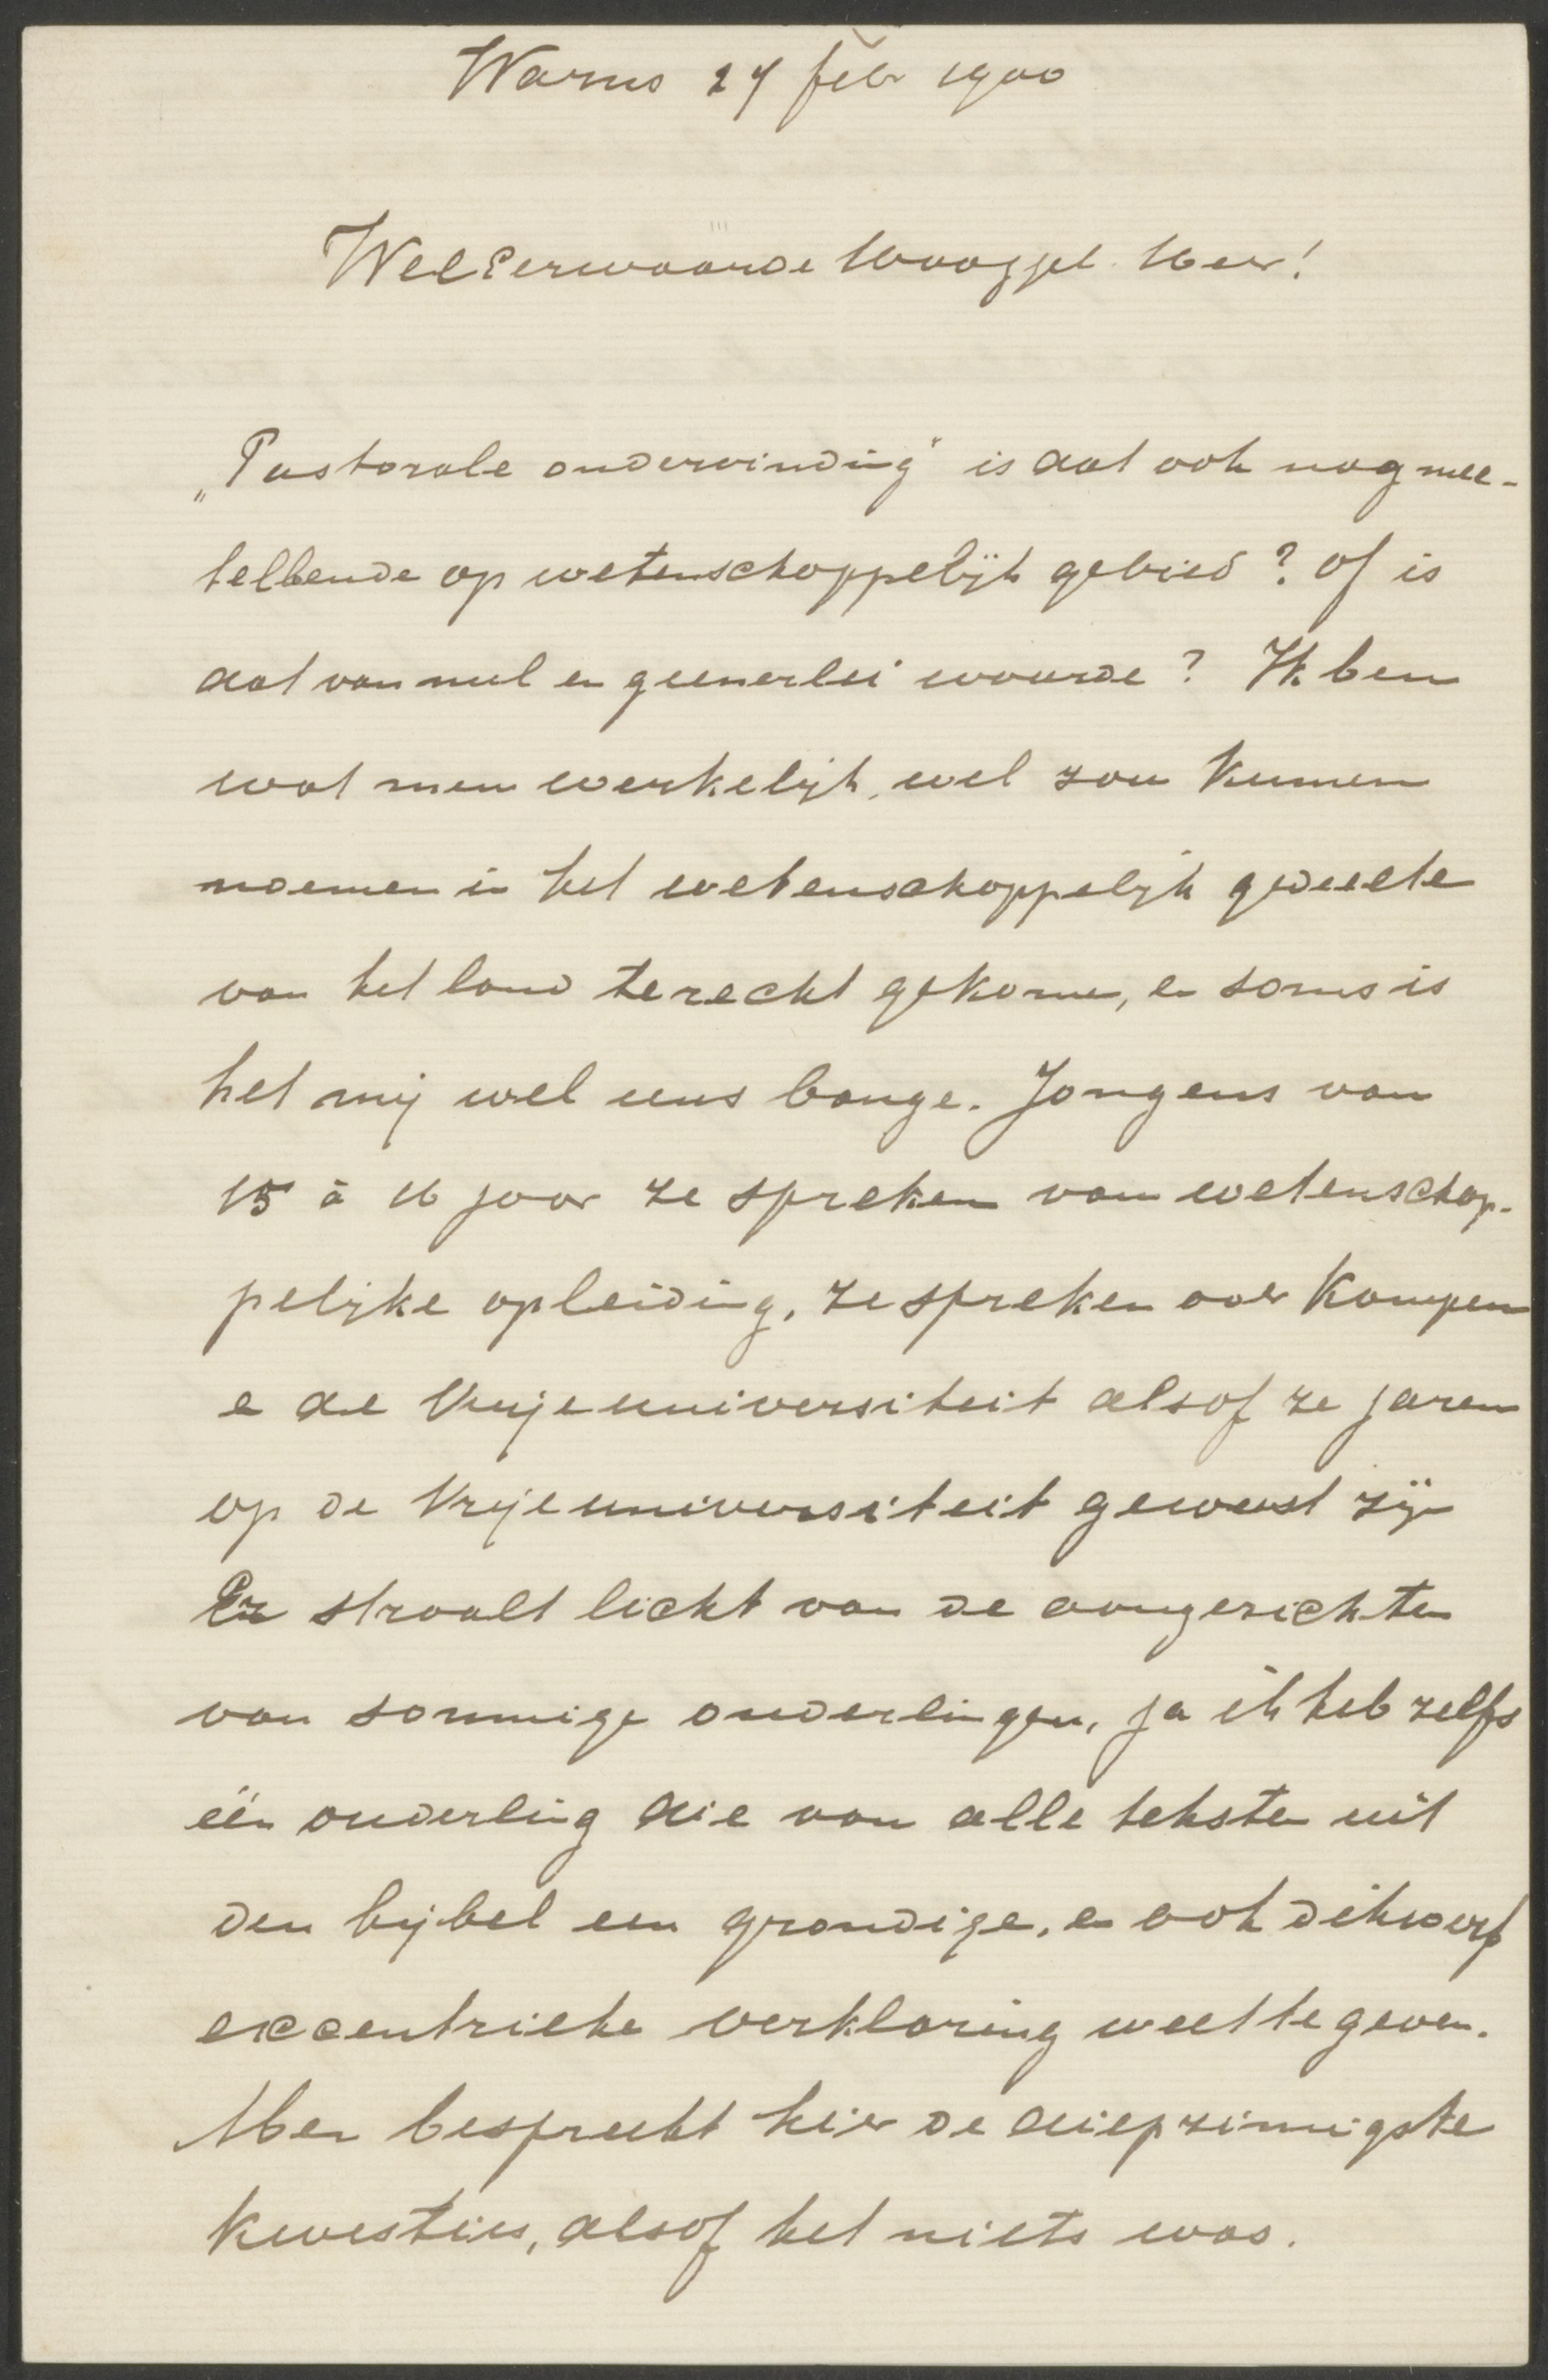 Warns 27 febr 1900
WelEerwaarde Hooggel. Heer!
„Pastorale ondervinding" is dat ook nog mee-
tellende op wetenschappelijk gebied? of is
dat van nul en geenerlei waarde? Ik ben
wat men werkelijk, wel zou kunnen
noemen in het wetenschappelijk gedeelte
van het land terecht gekomen, en soms is
het mij wel eens bange. Jongens van
15 à 16 jaar ze spreken van wetenschap-
pelijke opleiding, ze spreken over Kampen
en de Vrije universiteit alsof ze jaren
op de Vrije universiteit geweest zijn
Er straalt licht van de aangezichten
van sommige ouderlingen, ja ik heb zelfs
één ouderling die van alle teksten uit
den bijbel een grondige, en ook dikwerf
excentrieke verklaring weet te geven.
Men bespreekt hier de diepzinnigste
kwesties, alsof het niets was.